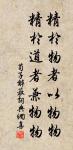 精於物者以物物
精於道者兼物物
荀子解蔽詞典網書